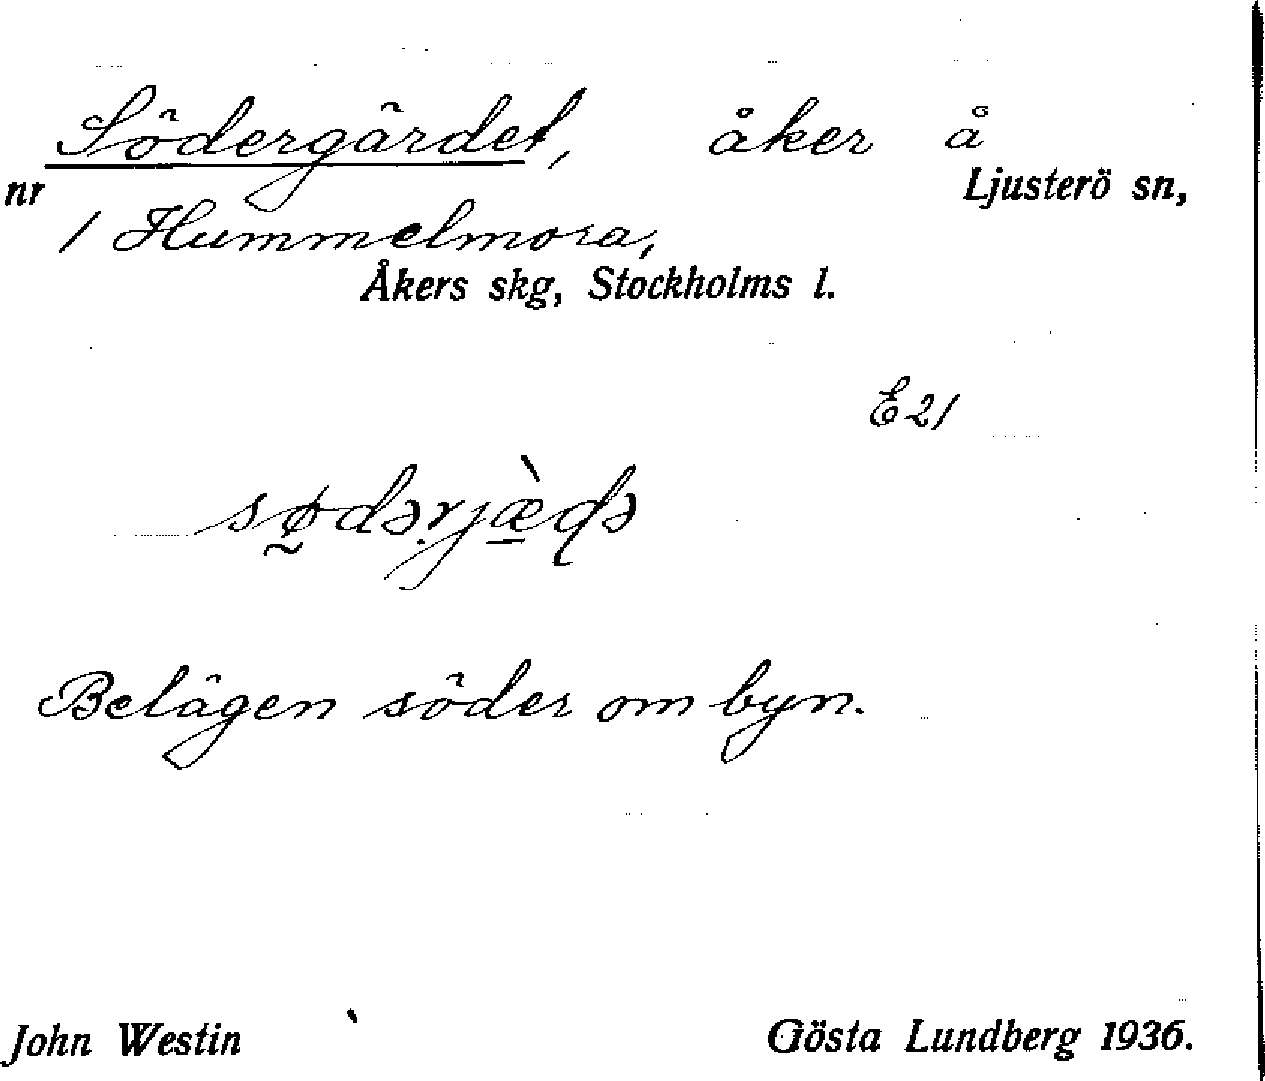 Södergärdet, åker å
nr Ljusterö sn,
1 Hummelmora,
Åkers skg, Stockholms l.
E 21
sø̰dəṛjæ̠̀ḍə
Belägen söder om byn.
John Westin Gösta Lundberg 1936.